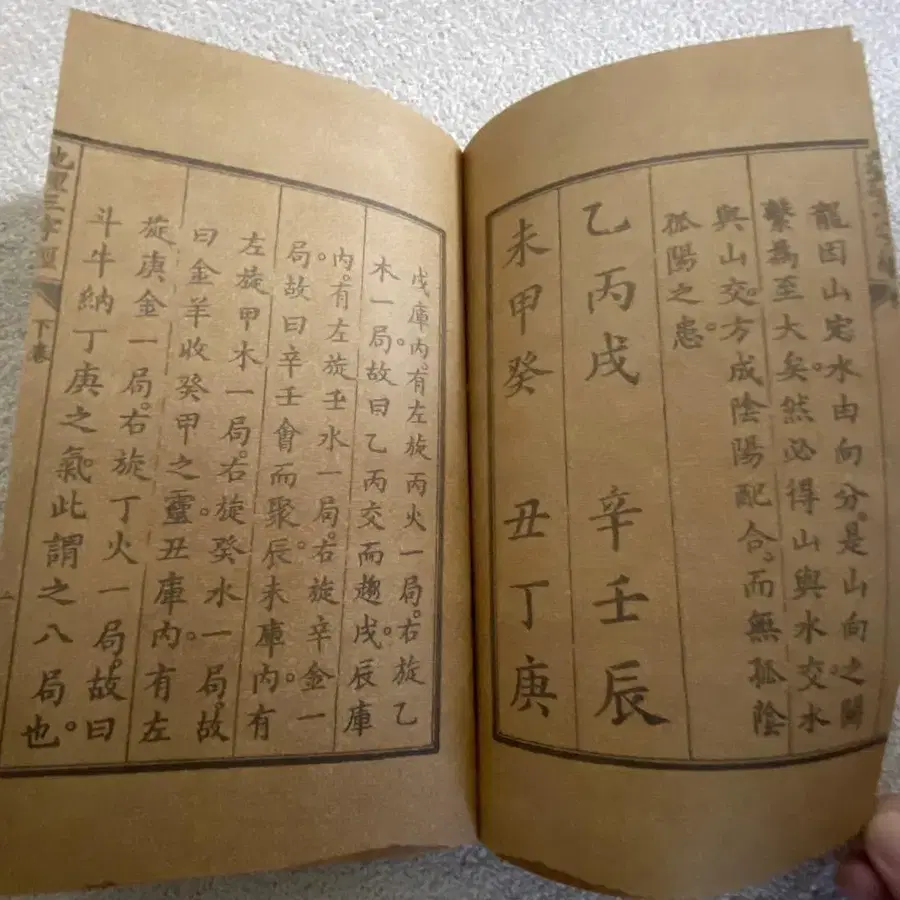 龍因山定水由向分。是山向之關
繫爲至大矣。然必得山與水交。水
與山交。方成陰陽配合。而無孤陰
孤陽之患。
乙丙戌 辛壬辰
未甲癸 丑丁庚
戌庫內。有左旋丙火一局。右旋乙
木一局。故曰乙丙交而趨戌。辰庫
內。有左旋壬水一局。右旋辛金一
局。故曰辛壬會而聚辰。未庫內。有
左旋甲木一局。右旋癸水一局。故
曰金羊收癸甲之靈。丑庫內。有左
旋庚金一局。右旋丁火一局。故曰
斗牛納丁庚之氣。此謂之八局也。
地理三字經 下卷